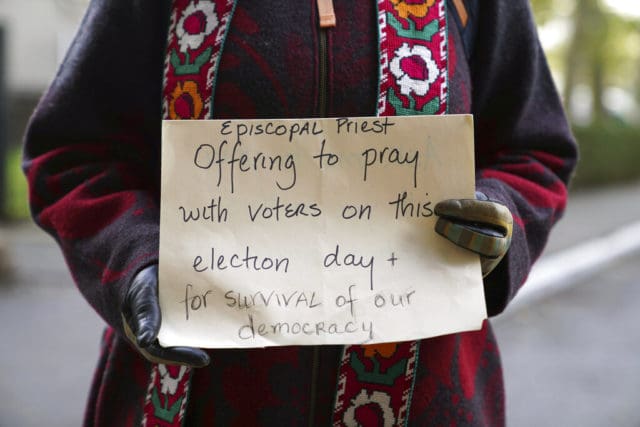 EPISCOPAL Priest
Offering to pray
with voters on this
election day +
for SURVIVAL of our
democracy